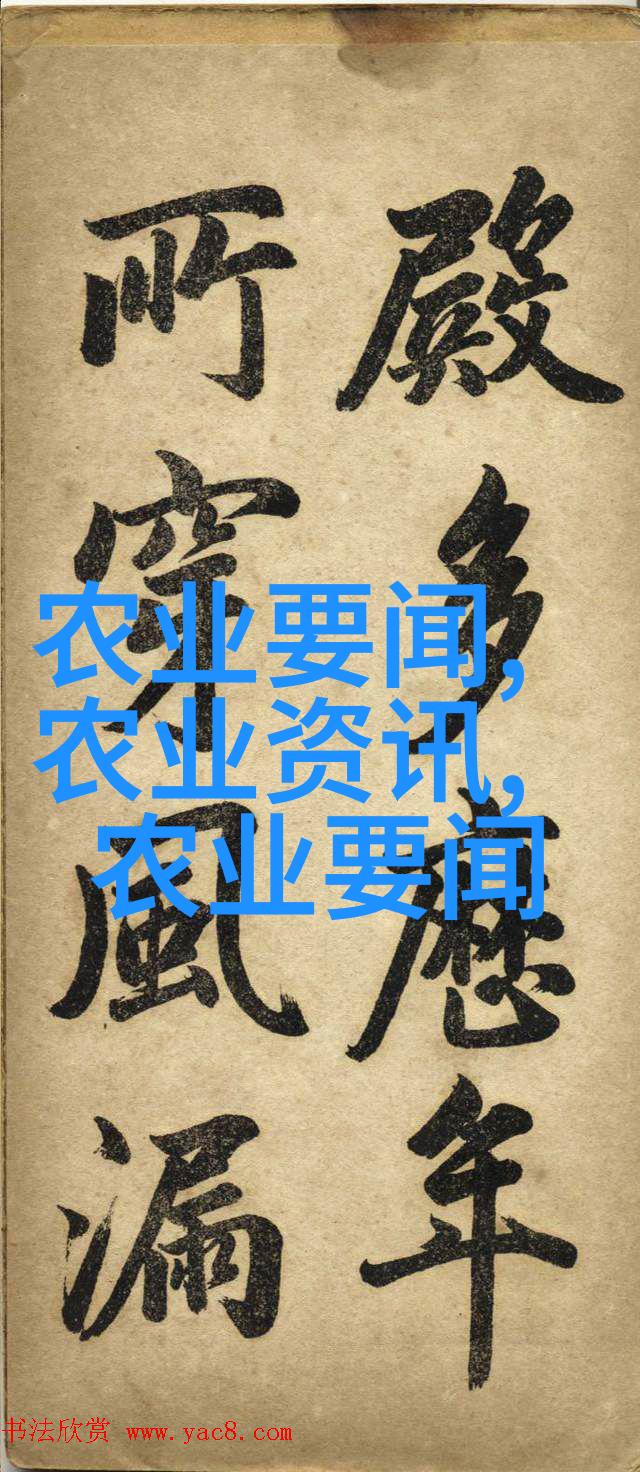 殿多歷年
所穿風漏
农业要闻,
农业资讯,
农业要闻
书法欣赏 www.yac8.com